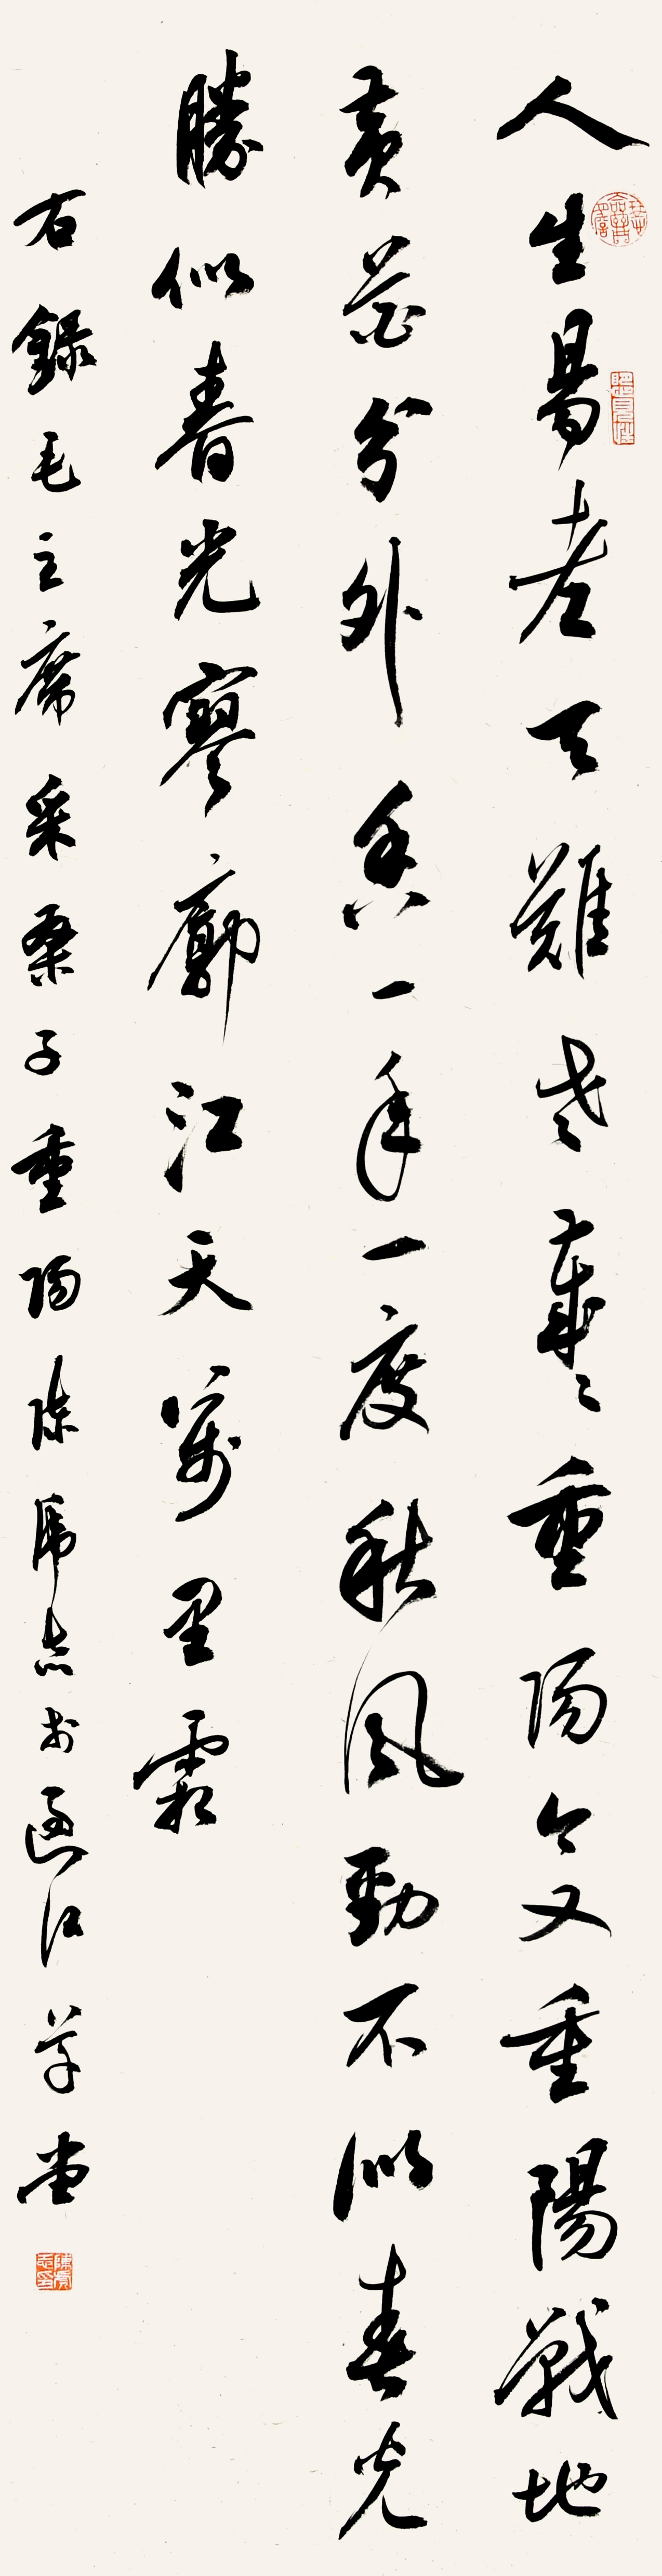 人生易老天難老歲〻重陽今又重陽戰地
黃花分外香一年一度秋風勁不似春光
勝似春光寥廓江天萬里霜
右錄毛主席采桑子重陽陳虎志於江草堂